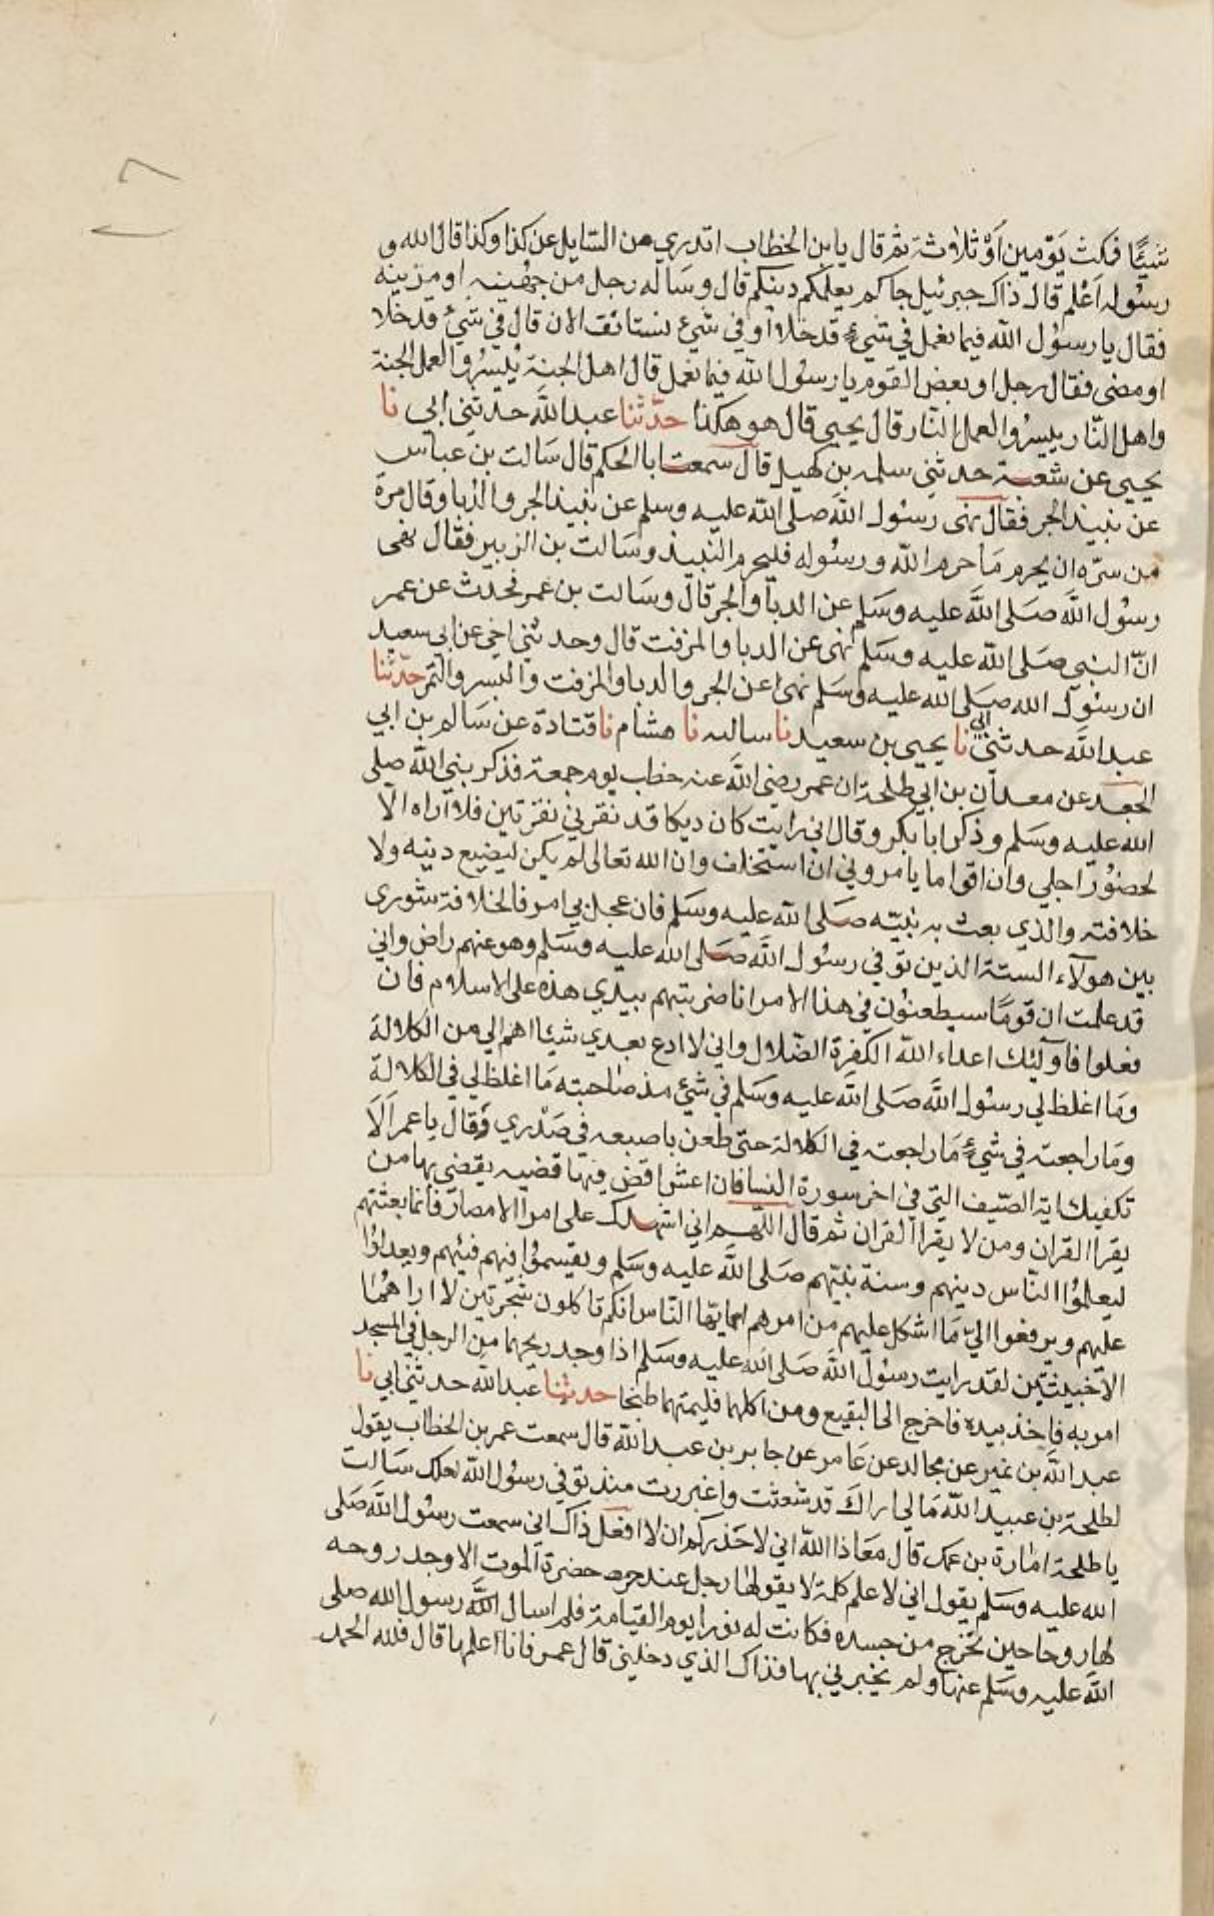 شيئا فمكث يومين او ثلاثة ثم قال يا بن الخطاب اتدري من السايل عن كذا وكذا قال الله و
رسوله اعلم قال ذاك جبرئيل جاكم يعلمكم دينكم قال وساله رجل من جهينه او مزينه
فقال يا رسول الله فيما نعمل في شيء قد خلا او في شيء نستانف الان قال في شيء قد خلا
او مضى فقال رجل او بعض القوم يا رسول الله فيما نعمل قال اهل الجنة ييسروا لعمل الجنة
واهل النار ييسروا لعمل النار قال يحيى قال هو هكذا حدثنا عبد الله حدثني ابي نا
يحيى عن شعبة حدثني سلمه بن كهيل قال سمعت ابا الحكم قال سالت بن عباس
عن نبيذ الجر فقال نهى رسول الله صلى الله عليه وسلم عن نبيذ الجر والدبا وقال مرة
من سره ان يحرم ما حرم الله ورسوله فليحرم النبيذ وسالت بن الزبير فقال نهى
رسول الله صلى الله عليه وسلم عن الدبا والجر قال وسالت بن عمر فحدث عن عمر
ان النبي صلى الله عليه وسلم نهى عن الدبا والمزفت قال وحدثني اخي عن ابي سعيد
ان رسول الله صلى الله عليه وسلم نهى عن الجر والدبا والمزفت والبسر والتمر حدثنا
عبد الله حدثني ابي نا يحيى بن سعيد نا سالته نا هشام نا قتادة عن سالم بن ابي
الجعد عن معدان بن ابي طلحة ان عمر رضي الله عنه خطب يوم جمعة فذكر نبي الله صلى
الله عليه وسلم وذكر ابا بكر وقال اني رايت كان ديكا قد نقرني نقرتين فلا اراه الا
لحضور اجلي وان اقواما يامروني ان استخلف وان الله تعالى لم يكن ليضيع دينه ولا
خلافته والذي بعث به نبيه صلى الله عليه وسلم فان عجل بي امر فالخلافة شورى
بين هولاء الستة الذين توفي رسول الله صلى الله عليه وسلم وهو عنهم راض واني
قد علمت ان قوما سيطعنون في هذا الامر انا ضربتهم بيدي هذه على الاسلام فان
فعلوا فاولئك اعداء الله الكفرة الضلال واني لا ادع بعدي شيئا اهم الي من الكلالة
وما اغلظ لي رسول الله صلى الله عليه وسلم في شيء مذ صاحبته ما اغلظ لي في الكلالة
وما راجعته في شيء ما راجعته في الكلالة حتى طعن باصبعه في صدري وقال يا عمر الا
تكفيك اية الصيف التي في اخر سورة النسا فان اعش اقض فيها قضيه يقضي بها من
يقرا القران ومن لا يقرا القران ثم قال اللهم اني اشهدك على امرا الامصار فانما بعثتهم
ليعلموا الناس دينهم وسنة نبيهم صلى الله عليه وسلم ويقسموا فيهم فيئهم ويعدلوا
عليهم ويرفعوا الي ما اشكل عليهم من امرهم ايها الناس انكم تاكلون شجرتين لا اراهما
الا خبيثتين لقد رايت رسول الله صلى الله عليه وسلم اذا وجد ريحهما من الرجل في المسجد
امر به فاخذ بيده فاخرج الى البقيع ومن اكلهما فليمتهما طبخا حدثنا عبد الله حدثني ابي نا
عبد الله بن نمير عن مجالد عن عامر عن جابر بن عبد الله قال سمعت عمر بن الخطاب يقول
لطلحة بن عبيد الله ما لي اراك قد شعثت واغبررت منذ توفي رسول الله لعلك سالت
يا طلحة امارة بن عمك قال معاذ الله اني لاحذركم ان لا افعل ذاك اني سمعت رسول الله صلى
الله عليه وسلم يقول اني لاعلم كلمة لا يقولها رجل عند حضرة الموت الا وجد روحه
لها روحا حين تخرج من جسده فكانت له نورا يوم القيامة فلم اسال رسول الله صلى
الله عليه وسلم عنها ولم يخبرني بها فذاك الذي دخلني قال عمر فانا اعلمها قال فلله الحمد